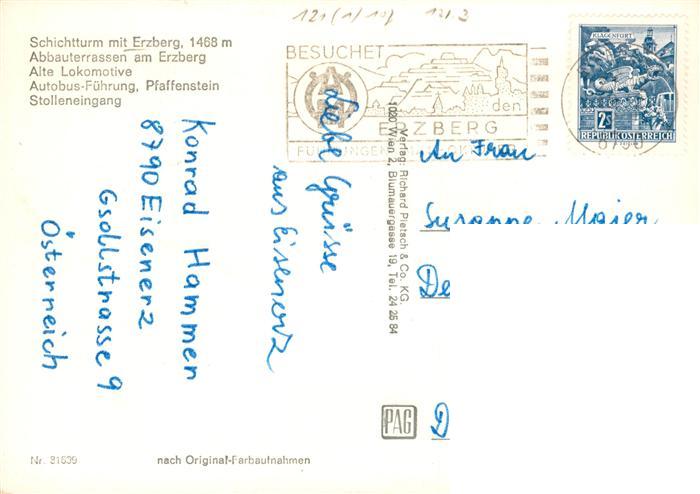 121(1/10) 121.2
Schichtturm mit Erzberg, 1468 m
Abbauterrassen am Erzberg
Alte Lokomotive
Autobus-Führung, Pfaffenstein
Stolleneingang
BESUCHET
den
ERZBERG
KLAGENFURT
2S
REPUBLIK ÖSTERREICH
Liebe Grüsse
aus Eisenerz
Konrad Hammen
8790 Eisenerz
Gsollstrasse 9
Österreich
Verlag: Richard Pietsch & Co. KG.
1020 Wien 2, Blumauergasse 19, Tel. 24 26 84
An Frau
Susanne Maier
De
D
PAG
Nr. 31539 nach Original-Farbaufnahmen